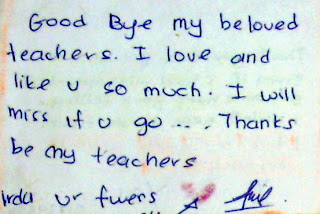 Good Bye my beloved
teachers. I love and
like u so much. I will
miss if u go .... Thanks
be my teachers
ur